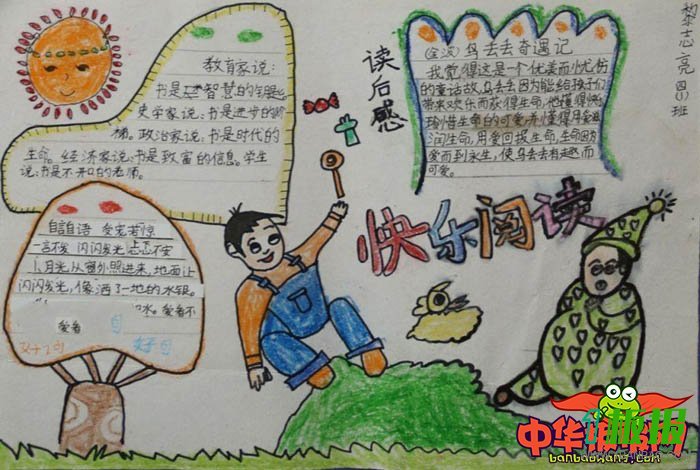 教育家说：
书是智慧的钥匙。
史学家说：书是进步的阶
梯。政治家说：书是时代的
生命。经济家说：书是致富的信息。学生
说：书是不开口的老师。
读后感
乌去去奇遇记
我觉得这是一个优美而忧伤
的童话故，乌去去因为能给孩子们
带来欢乐而获得生命，他懂得快
珍惜生命的可爱，
润生命，用爱回报生命，生命因为
爱而到永生，使乌去去有趣而
可爱。
四(1)班
快乐阅读
自言自语 受宠若惊
一言不发 闪闪发光 忐忑不安
月光从窗外照进来，地面让
闪闪发光，像洒了一地的水银。
水。爱看不
爱看
好句
中华
banbaowang.com